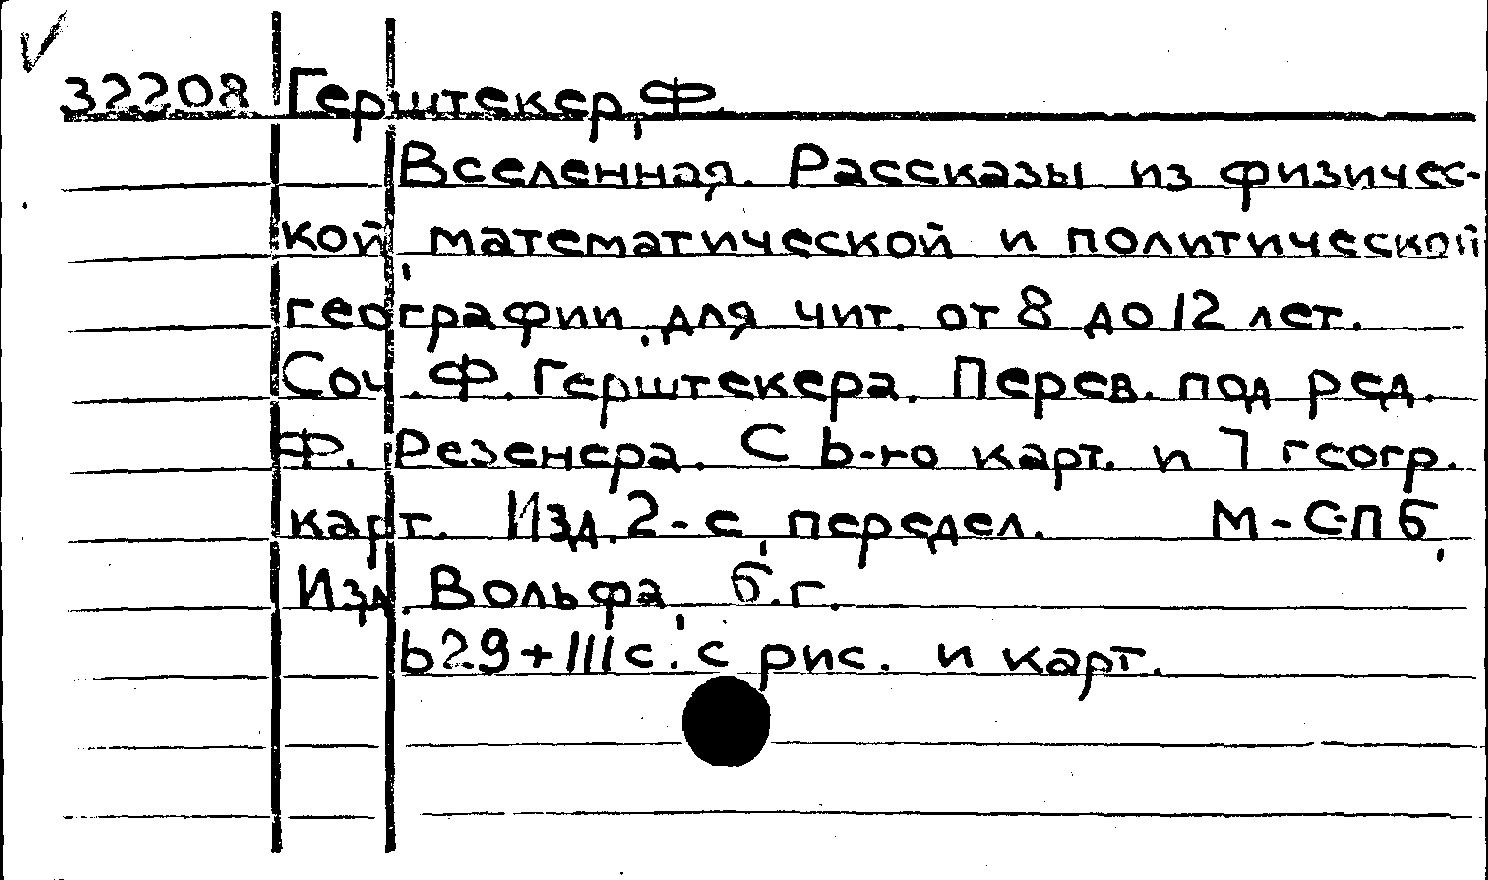 32208 Герштекер, Ф.
Вселенная. Рассказы из физичес-
кой, математической и политической
географии, для чит. от 8 до 12 лет.
Соч. Ф. Герштекера. Перев. под ред.
Ф. Резенера. С 6-ю карт. и 7 геогр.
карт. Изд. 2-е, передел. М-СПб,
Изд. Вольфа, б.г.
629+III с. с рис. и карт.